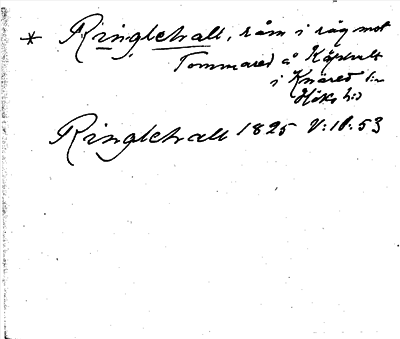 * Ringlehall, råm i råg mot
Tommared å Köphult
i Knäred sn
Höks hd
Ringlehall 1825 V:10:53